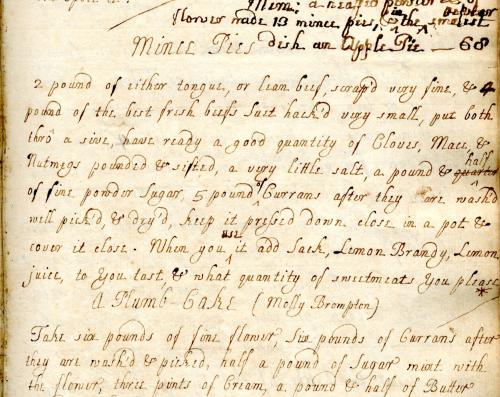 Mem: a heaped
flower made 13 mince pies, & the smalest
Mince Pies dish an Apple Pie — 68
2 pound of either tongue, or lean beef, scrap'd very fine, & 4
pound of the best fresh beefs suet hack'd very small, put both
thrô a sive, have ready a good quantity of Cloves, Mace, &
Nutmegs pounded & sifted, a very little salt, a pound & half
of fine powder Sugar, 5 pound of Currans after they are wash'd
will pick'd, & dry'd, keep it pressed down close in a pot &
cover it close. When you use it add Sack, Lemon Brandy, Lemon
juice, to you tast, & what quantity of sweetmeats you please
A Plumb-Cake (Molly Brompton)
Take six pounds of fine flower, six pounds of Currans after
they are wash'd & picked, half a pound of Sugar mixt with
the flower, three pints of Cream, a pound & half of Butter